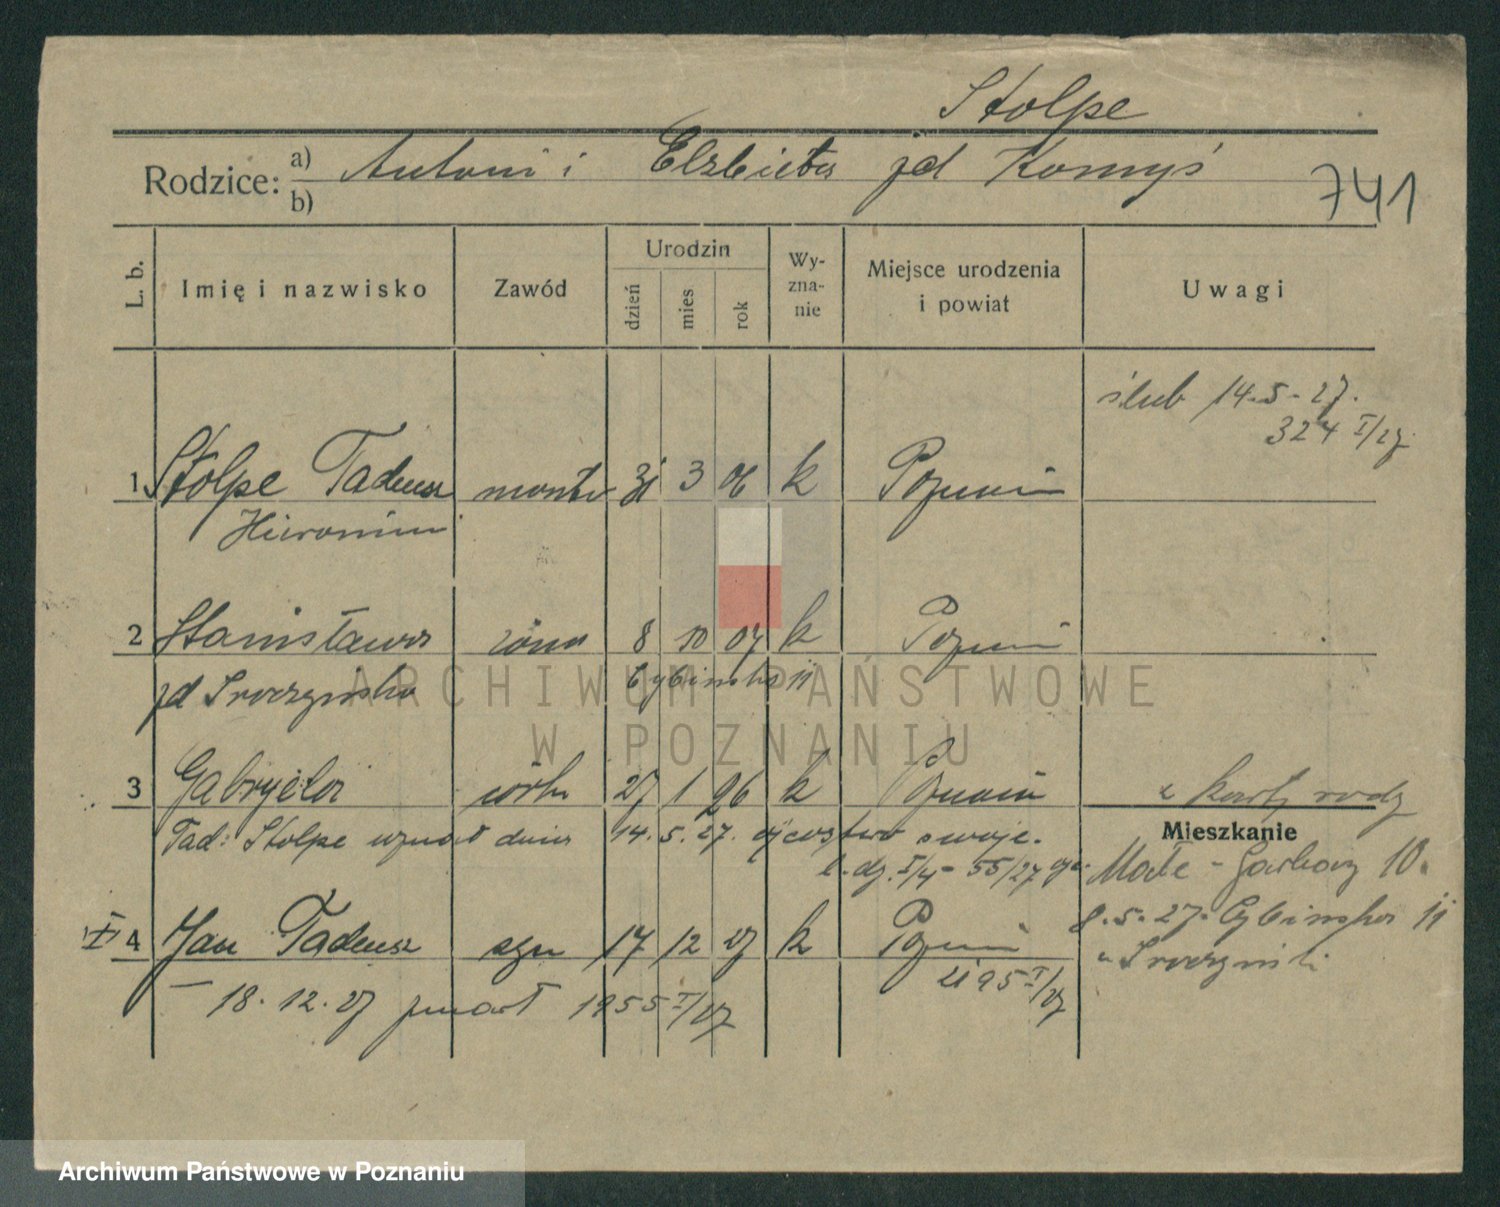 Stolpe
Rodzice: a) Antoni i Elzbieta zd Komyś
b)
741
L. b. Imię i nazwisko Zawód Urodzin dzień mies rok Wyznanie Miejsce urodzenia i powiat Uwagi
ślub 14.5.-27.
324 I/27
1 Stolpe Tadeusz monter 31 3 06 k Poznań
Hieronim
2 Stanisława żona 8 10 07 k Poznań
zd Sroczyńska Cybińska 11
3 Gabryela córka 27 1 26 k Poznań z karty rodz
Tad: Stolpe uznał dnia 14.5.27. ojcostwo swoje.
l.dz. I/4 - 55/27
Mieszkanie
Małe-Garbary 10.
8.5.27. Cybińska 11
u Sroczyński
4 Jan Tadeusz syn 17 12 27 k Poznań
2195 I/27
18.12.27 zmarł 1955 I/27
ARCHIWUM PAŃSTWOWE
W POZNANIU
Archiwum Państwowe w Poznaniu